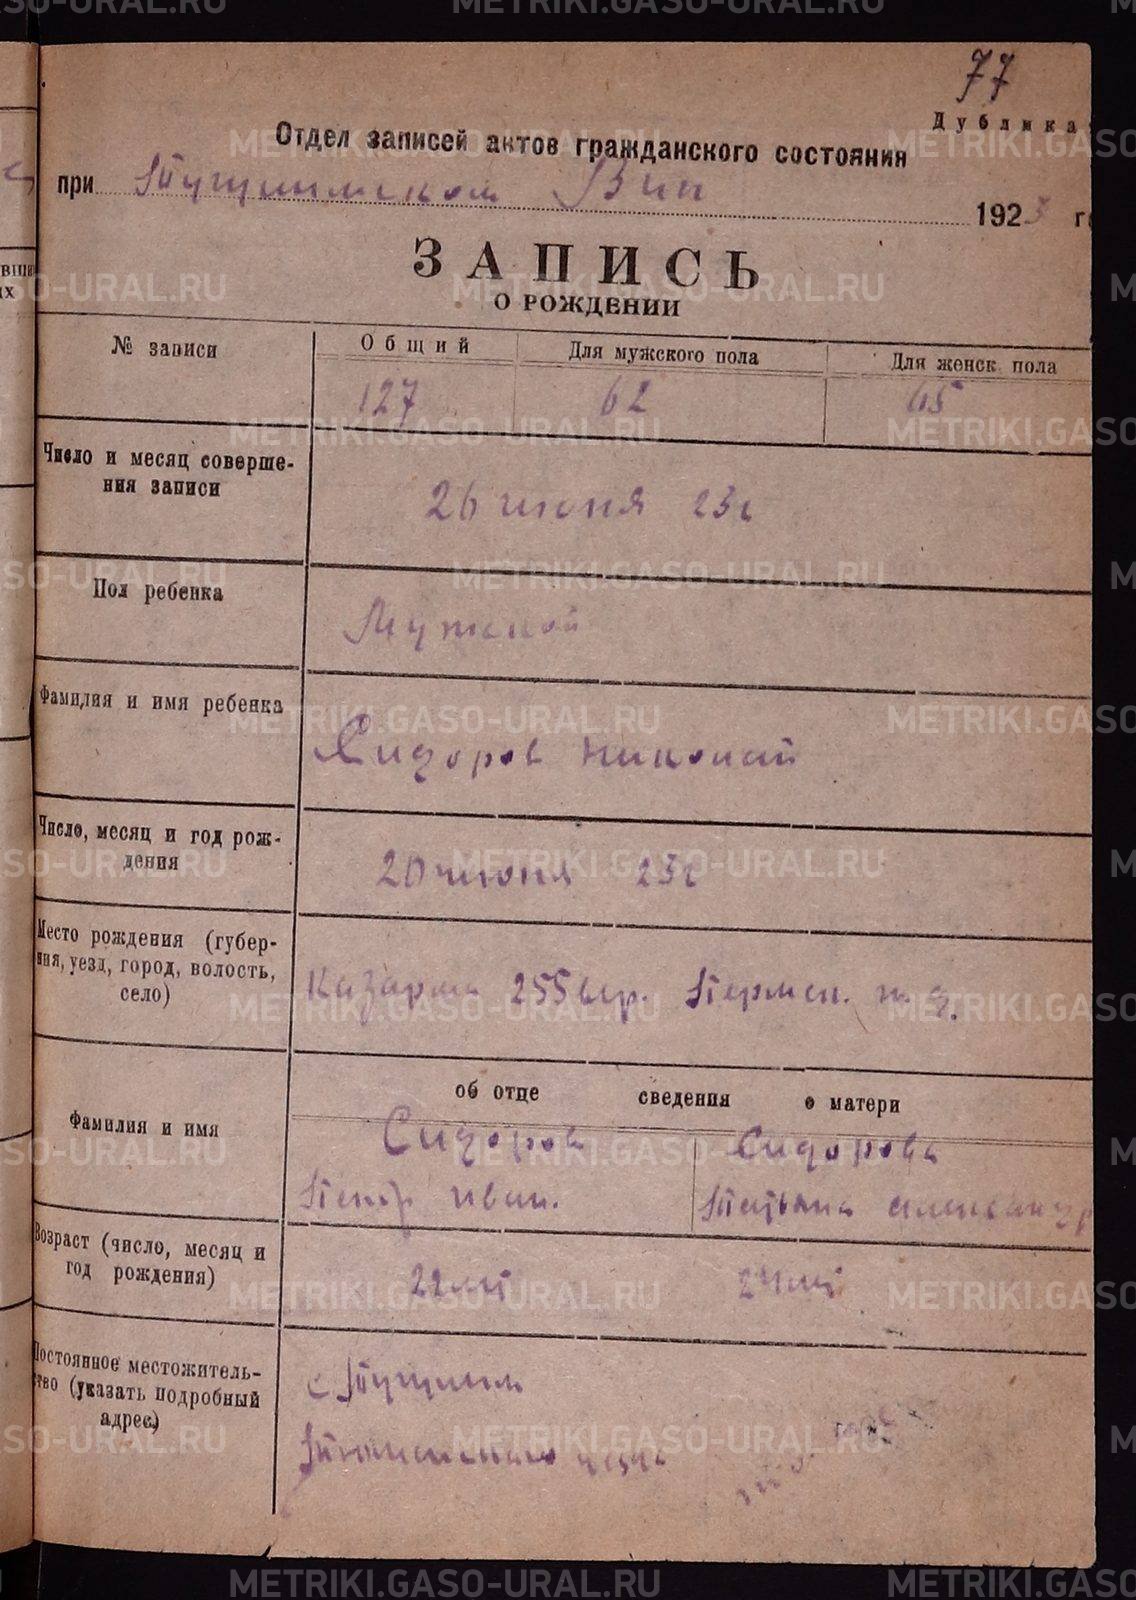 77
Дублика
Отдел записей актов гражданского состояния
при Тугулымском Вик 1923 г
ЗАПИСЬ
О РОЖДЕНИИ
№ записи
Общий
Для мужского пола
Для женск. пола
127
62
65
Число и месяц соверше-
ния записи
26 июня 23г
Пол ребенка
Мужской
Фамилия и имя ребенка
Сидоров Николай
Число, месяц и год рож-
дения
20 июня 23г
Место рождения (губер-
ния, уезд, город, волость,
село)
Казарма 255 вер. Пермск. ж. д.
об отце сведения о матери
Фамилия и имя
Сидоров
Сидорова
Петр Иван.
Татьяна Александр
Возраст (число, месяц и
год рождения)
22 лет
24 лет
Постоянное местожитель-
ство (указать подробный
адрес)
с Тугулым
Тюменского уезда
METRIKI.GASO-URAL.RU